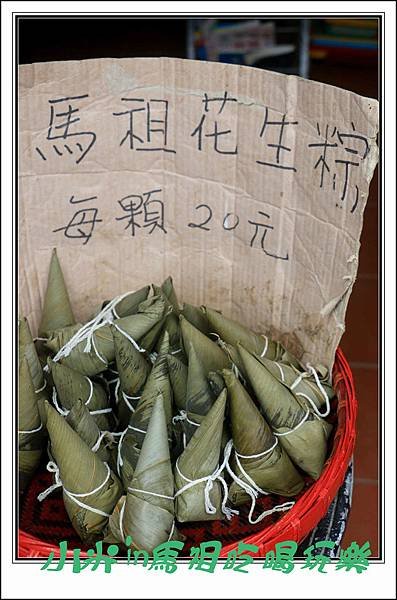 馬祖花生粽
每顆20元
小米in馬祖吃喝玩樂